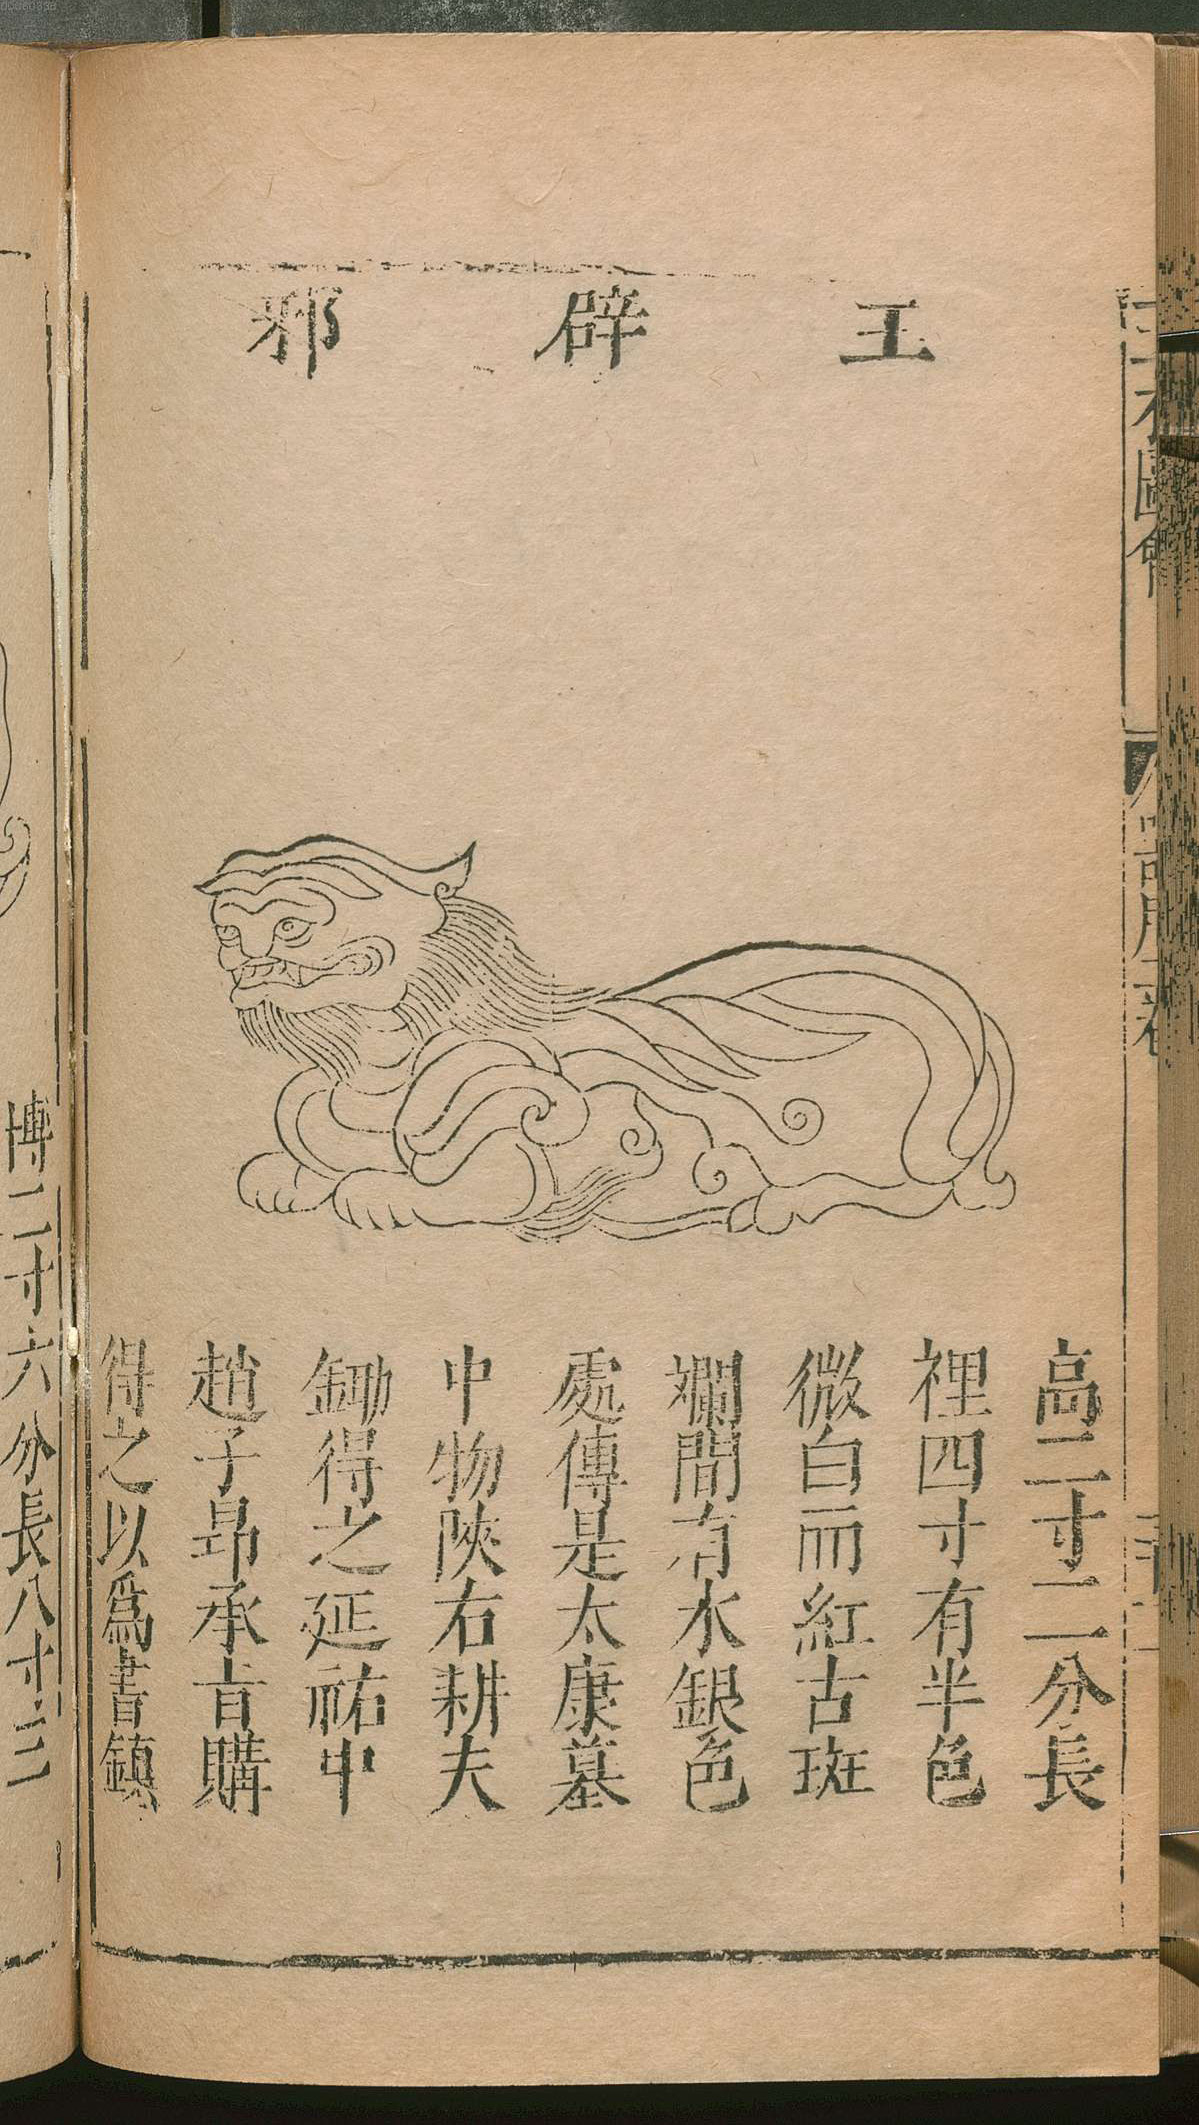 王辟邪
高二寸二分長
裡四寸有半色
微白而紅古斑
斕間有水銀色
處傳是太康墓
中物陝右耕夫
鋤得之延祐中
趙子昂承旨購
得之以爲書鎮
博二寸六分長八寸三